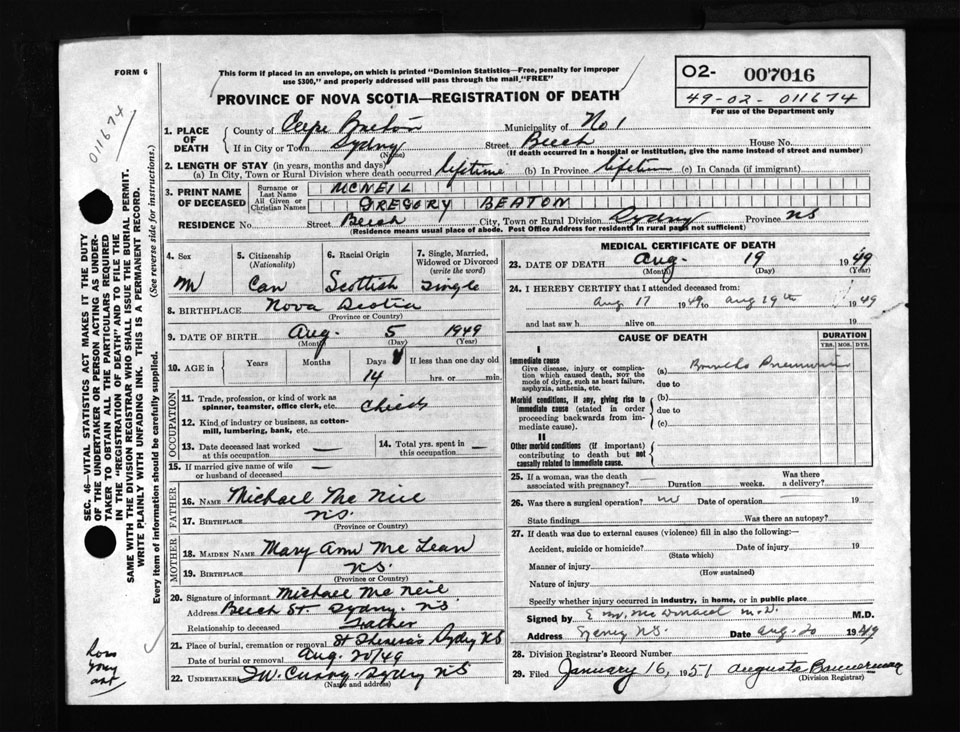 FORM 6
This form if placed in an envelope, on which is printed "Dominion Statistics—Free, penalty for improper
use $300," and properly addressed will pass through the mail "FREE"
PROVINCE OF NOVA SCOTIA—REGISTRATION OF DEATH
O2- 007016
49-02-011674
For use of the Department only
011674
1. PLACE OF DEATH
County of Cape Breton Municipality of No 1
If in City or Town Sydney Street Beech House No.
(Name) (If death occurred in a hospital or institution, give the name instead of street and number)
2. LENGTH OF STAY (in years, months and days)
(a) In City, Town or Rural Division where death occurred lifetime (b) In Province lifetime (c) In Canada (if immigrant)
3. PRINT NAME OF DECEASED
Surname or Last Name MCNEIL
All Given or Christian Names GREGORY BEATON
RESIDENCE No. Street Beech City, Town or Rural Division Sydney Province NS
(Residence means usual place of abode. Post Office Address for residents in rural parts not sufficient)
4. Sex M
5. Citizenship (Nationality) Can
6. Racial Origin Scottish
7. Single, Married, Widowed or Divorced (write the word) Single
8. BIRTHPLACE Nova Scotia
(Province or Country)
9. DATE OF BIRTH Aug. 5 1949
(Month) (Day) (Year)
10. AGE in Years Months Days 14 If less than one day old hrs. or min.
OCCUPATION
11. Trade, profession, or kind of work as spinner, teamster, office clerk, etc. Child
12. Kind of industry or business, as cotton-mill, lumbering, bank, etc.
13. Date deceased last worked at this occupation —
14. Total yrs. spent in this occupation —
15. If married give name of wife or husband of deceased —
FATHER
16. NAME Michael Mc Neil
17. BIRTHPLACE NS.
(Province or Country)
MOTHER
18. MAIDEN NAME Mary Ann Mc Lean
19. BIRTHPLACE NS.
(Province or Country)
20. Signature of informant Michael Mc Neil
Address Beech St Sydney. NS.
Relationship to deceased Father
21. Place of burial, cremation or removal St Theresa's Sydney NS
Date of burial or removal Aug. 20/49
22. UNDERTAKER W. Curry. Sydney NS
(Name and address)
MEDICAL CERTIFICATE OF DEATH
23. DATE OF DEATH Aug. 19 1949
(Month) (Day) (Year)
24. I HEREBY CERTIFY that I attended deceased from:
Aug 17 1949 to Aug 19th 1949
and last saw h alive on 19
CAUSE OF DEATH
DURATION
YRS. MOS. DYS.
I
Immediate cause
Give disease, injury or complication which caused death, NOT the mode of dying, such as heart failure, asphyxia, asthenia, etc.
(a) Broncho Pneumonia
due to
Morbid conditions, if any, giving rise to immediate cause (stated in order proceeding backwards from immediate cause).
(b)
due to
(c)
II
Other morbid conditions (if important) contributing to death but not causally related to immediate cause.
25. If a woman, was the death associated with pregnancy? — Duration weeks. Was there a delivery?
26. Was there a surgical operation? no Date of operation 19
State findings Was there an autopsy?
27. If death was due to external causes (violence) fill in also the following:—
Accident, suicide or homicide? Date of injury 19
(State which)
Manner of injury
(How sustained)
Nature of injury
Specify whether injury occurred in industry, in home, or in public place
Signed by McDonald M.D. M.D.
Address Sydney N.S. Date Aug. 20 1949
28. Division Registrar's Record Number
29. Filed January 16, 1951 Augusta Bannerman
(Division Registrar)
SEC. 46—VITAL STATISTICS ACT MAKES IT THE DUTY
OF THE UNDERTAKER OR PERSON ACTING AS UNDER-
TAKER TO OBTAIN ALL THE PARTICULARS REQUIRED
IN THE "REGISTRATION OF DEATH" AND TO FILE THE
SAME WITH THE DIVISION REGISTRAR WHO SHALL ISSUE THE BURIAL PERMIT.
WRITE PLAINLY WITH UNFADING INK. THIS IS A PERMANENT RECORD.
Every item of information should be carefully supplied. (See reverse side for instructions.)